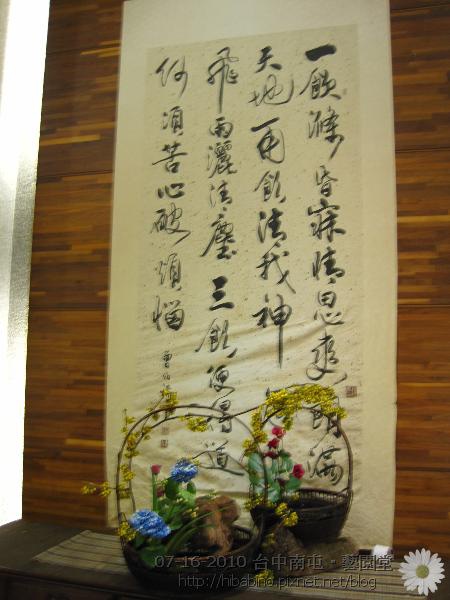 一飲滌昏寐情思爽朗滿
天地再飲清我神
飛雨灑清塵三飲便得道
何須苦心破煩惱
07-16-2010 台中南屯‧藝園堂
http://hbabino.pixnet.net/blog